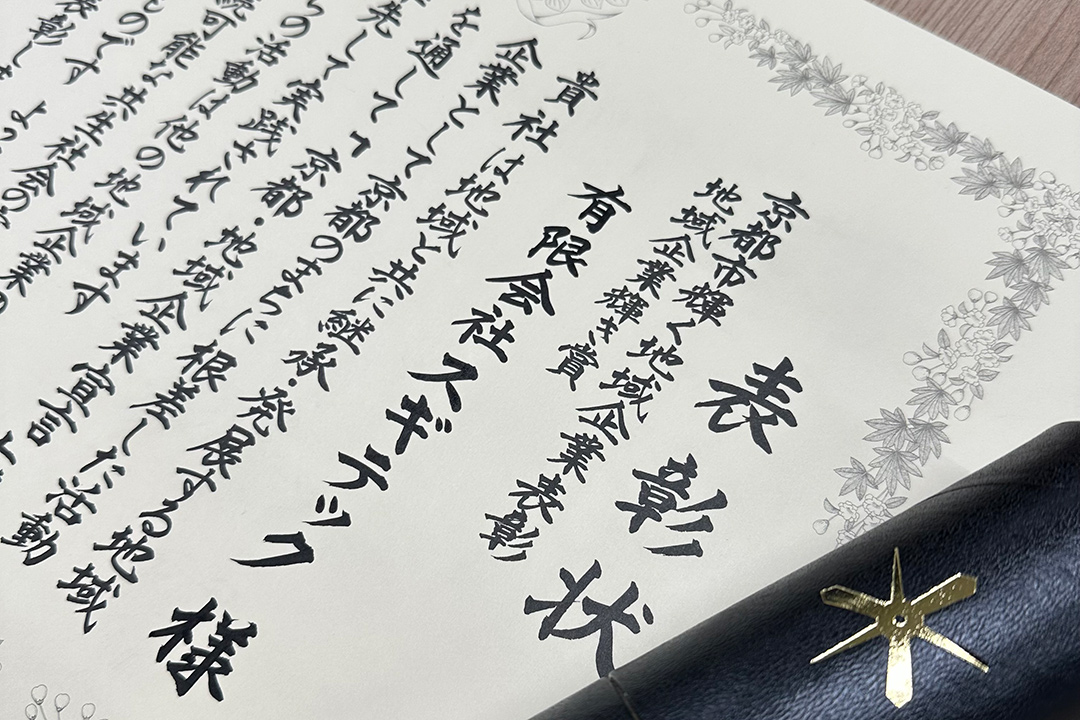 表彰状
京都市輝く地域企業表彰
地域企業輝き賞
有限会社スギテック 様
貴社は地域と共に継承・発展する地域
企業として京都のまちに根差した活動
を通して、京都・地域企業宣言
先して実践されています
の活動は他の地域企業の
続可能な共生社会の
のです
表彰しま